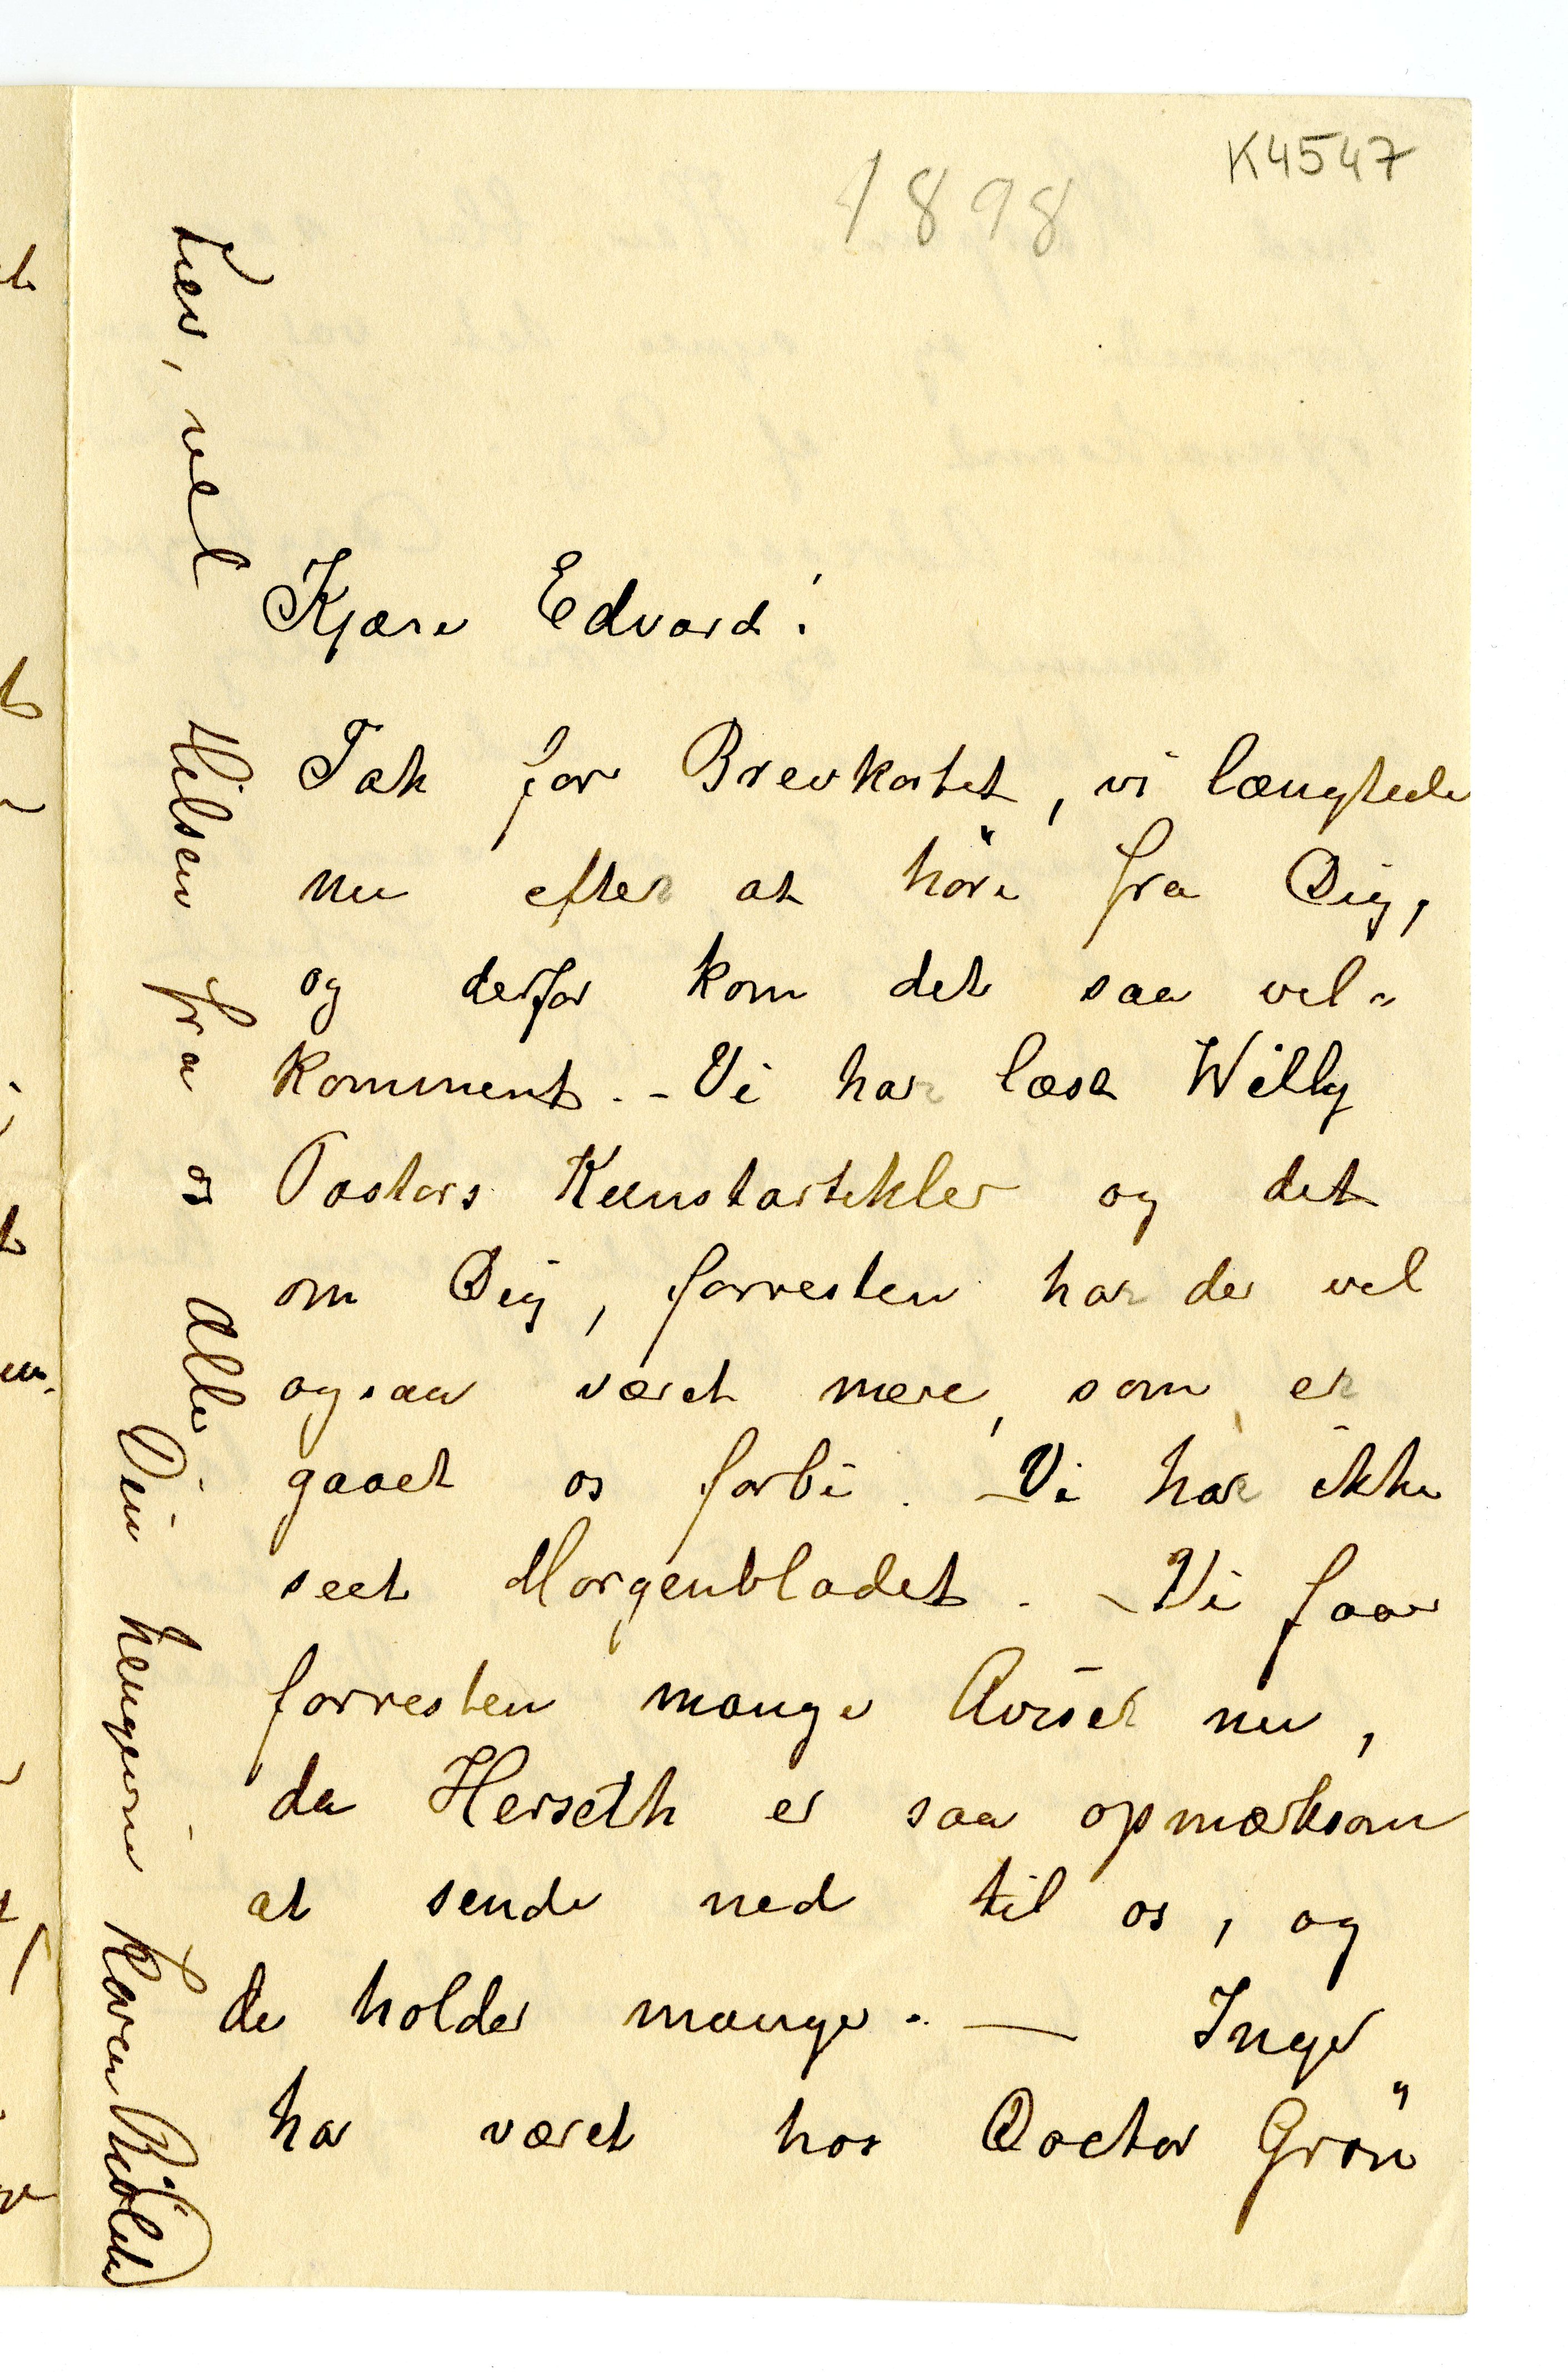 K4547
1898
Kjære Edvard!
Tak for Brevkortet, vi længtede
nu efter at höre fra Dig,
og derfor kom det saa vel-
komment. - Vi har læst Willy
Pastors Kunstartikler og det
om Dig, forresten har der vel
ogsaa været mere, som er
gaaet os forbi. - Vi har ikke
seet Morgenbladet. - Vi faar
forresten mange Aviser nu,
da Herseth er saa opmærksom
at sende ned til os, og
de holder mange. — Inger
har været hos Doctor Grön
Lev, vel Hilsen fra os Alle
Din hengivne Karen Bjölstad